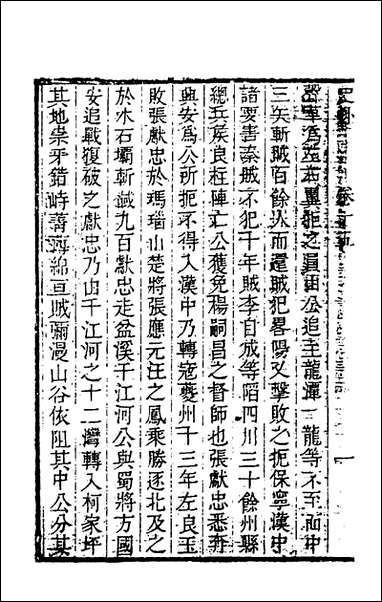 分左右翼扼之圓田公追至龍潭二龍等不至而中
三矢斬賊百餘人而還賊犯畧陽又擊敗之扼保寧漢中
諸要害秦賊不犯十年賊李自成等陷四川三十餘州縣
總兵侯良柱陣亡公獲免楊嗣昌之督師也張獻忠悉奔
興安爲公所扼不得入漢中乃轉寇夔州十三年左良玉
敗張獻忠於瑪瑙山楚將張應元汪之鳳乘勝逐北及之
於水石壩斬馘九百獻忠走盆溪千江河公與蜀將方國
安追戰復破之獻忠乃由千江河之十二灣轉入柯家坪
其地祟牙錯峙蓊薄綿亘賊彌漫山谷依阻其中公分其